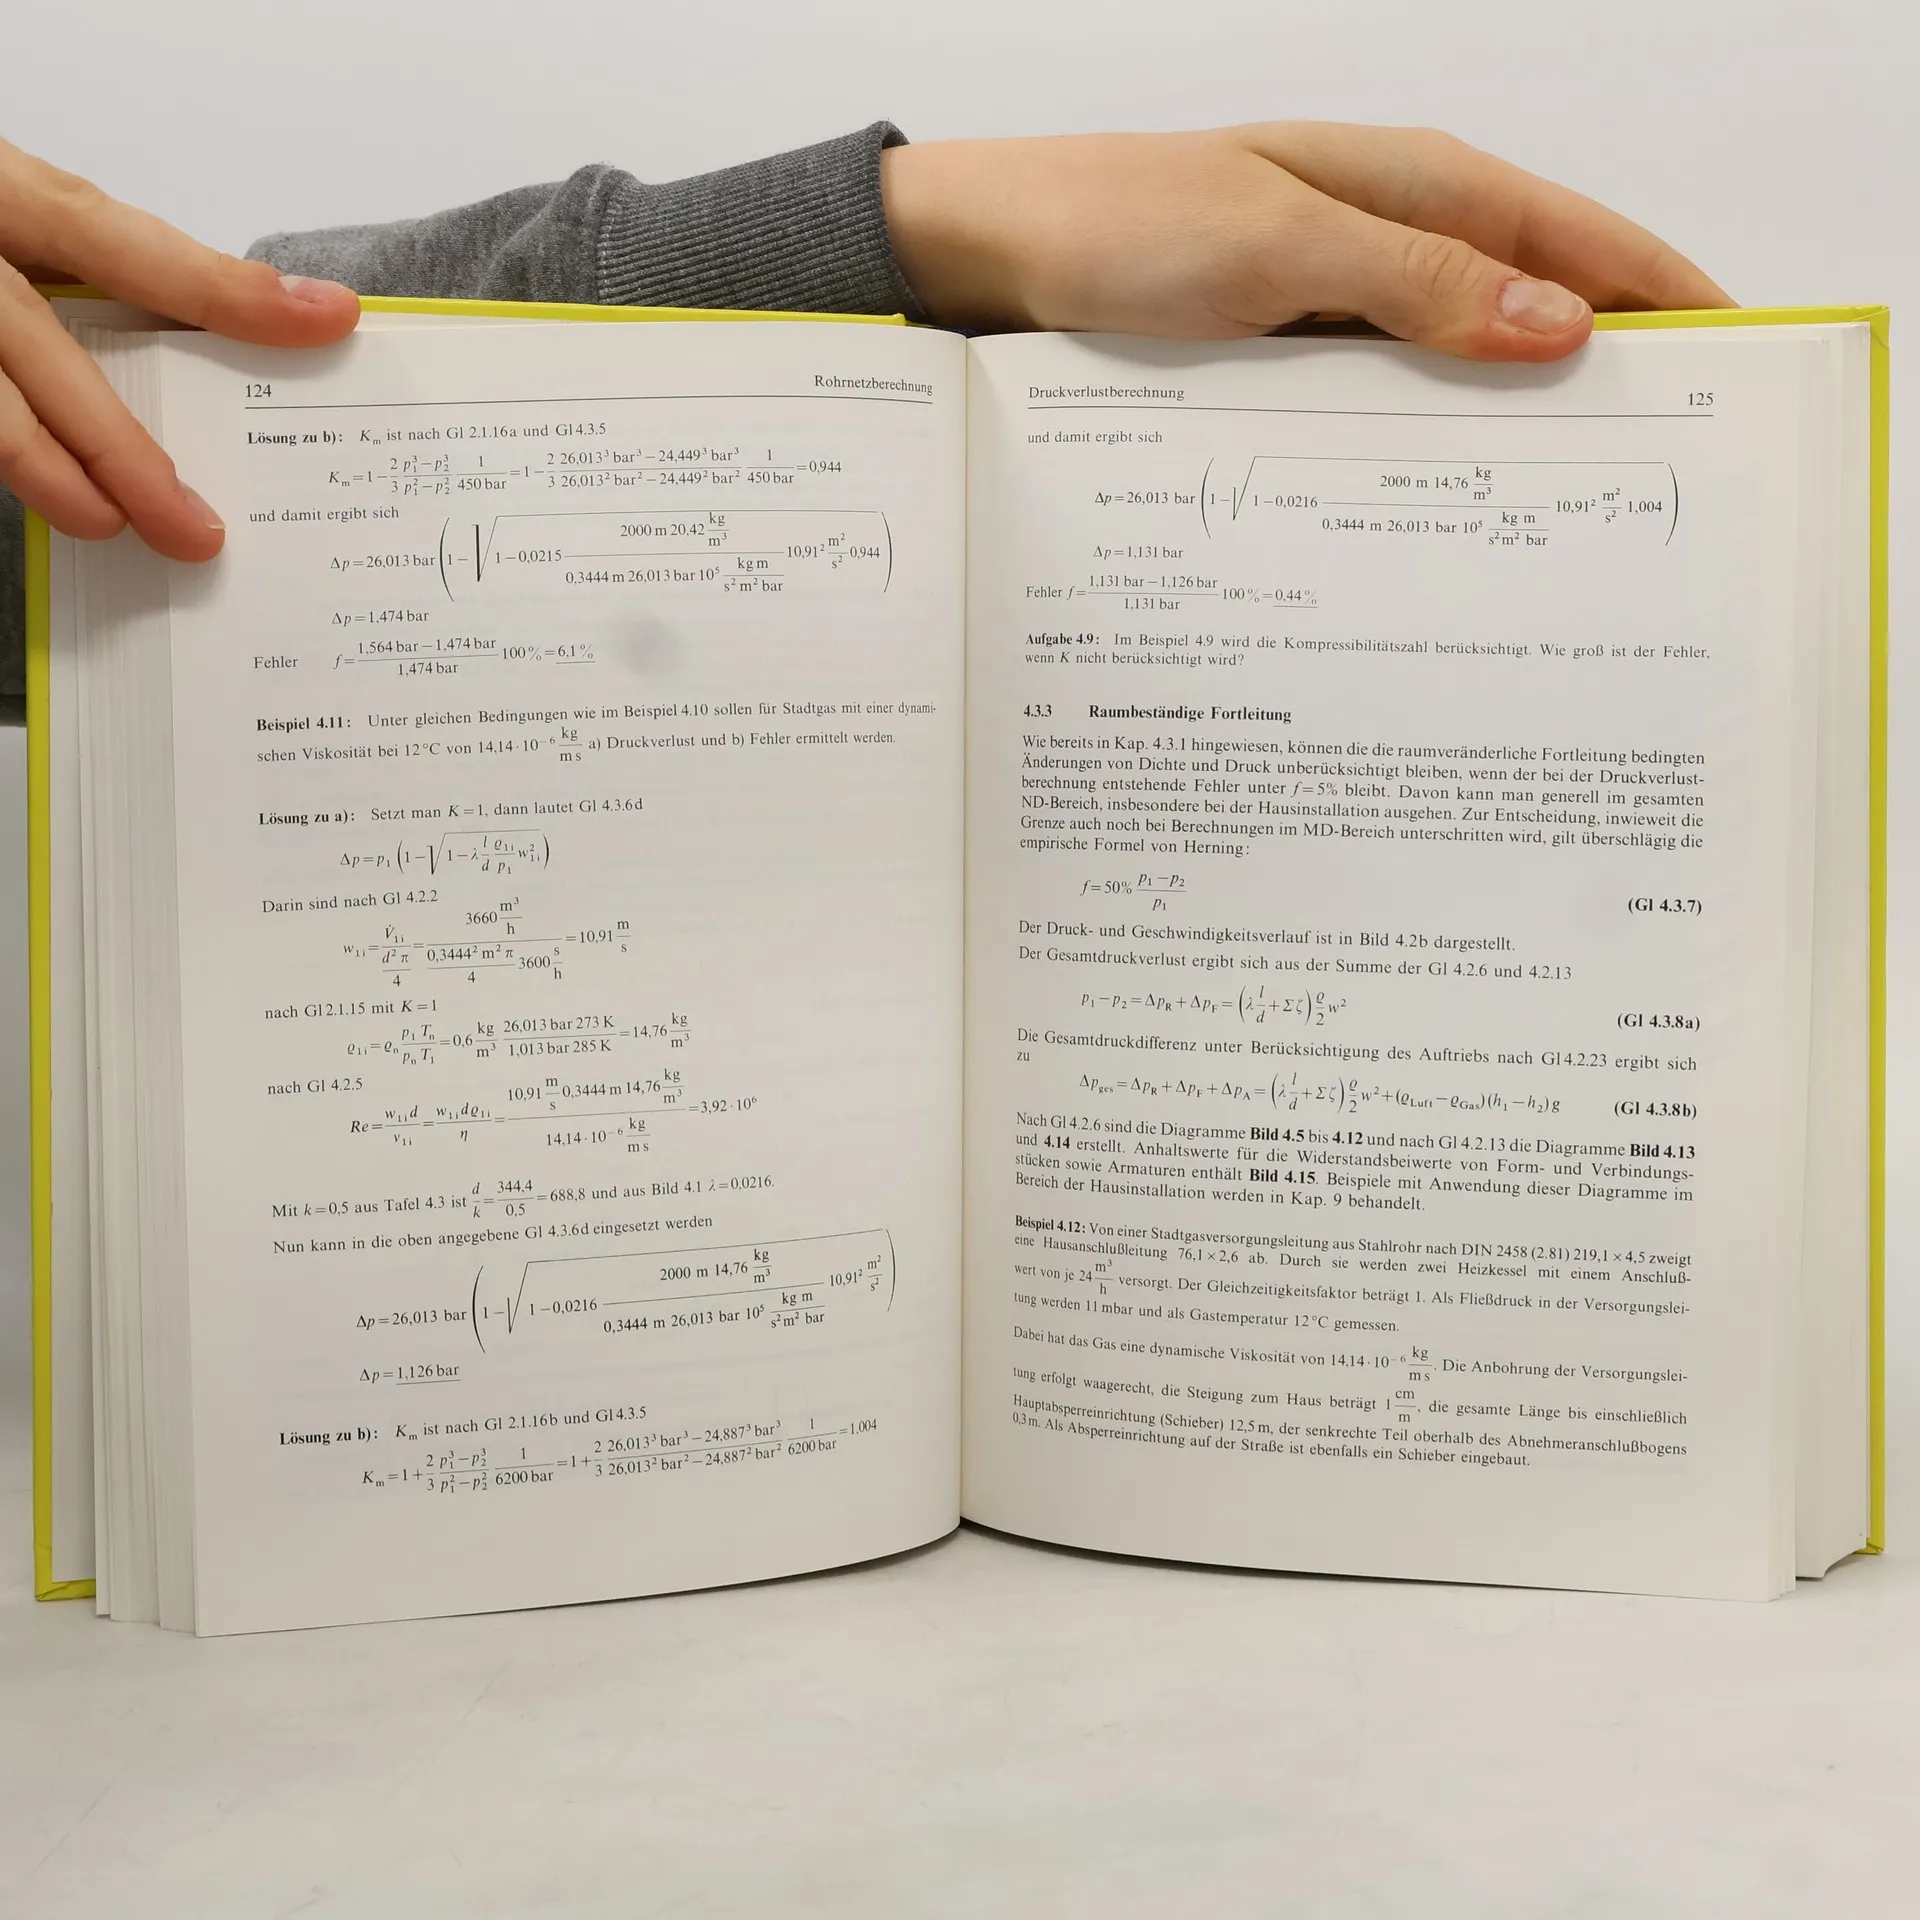 124 Rohrnetzberechnung
Lösung zu b): Kₘ ist nach Gl 2.1.16a und Gl 4.3.5
Kₘ = 1 − 2/3 (p₁³ − p₂³)/(p₁² − p₂²) 1/(450 bar) = 1 − 2/3 (26,013³ bar³ − 24,449³ bar³)/(26,013² bar² − 24,449² bar²) 1/(450 bar) = 0,944
und damit ergibt sich
Δp = 26,013 bar (1 − √(1 − 0,0215 (2000 m 20,42 kg/m³)/(0,3444 m 26,013 bar 10⁵ kg m/(s² m² bar)) 10,91² m²/s² 0,944))
Δp = 1,474 bar
Fehler f = (1,564 bar − 1,474 bar)/(1,474 bar) 100 % = 6,1 %
Beispiel 4.11: Unter gleichen Bedingungen wie im Beispiel 4.10 sollen für Stadtgas mit einer dynami-
schen Viskosität bei 12 °C von 14,14 · 10⁻⁶ kg/(m s) a) Druckverlust und b) Fehler ermittelt werden.
Lösung zu a): Setzt man K = 1, dann lautet Gl 4.3.6d
Δp = p₁ (1 − √(1 − λ l/d ϱ₁ᵢ/p₁ w₁ᵢ²))
Darin sind nach Gl 4.2.2
w₁ᵢ = V̇₁ᵢ/(d² π/4) = (3660 m³/h)/(0,3444² m² π/4 3600 s/h) = 10,91 m/s
nach Gl 2.1.15 mit K = 1
ϱ₁ᵢ = ϱₙ (p₁ Tₙ)/(pₙ T₁) = 0,6 kg/m³ (26,013 bar 273 K)/(1,013 bar 285 K) = 14,76 kg/m³
nach Gl 4.2.5
Re = (w₁ᵢ d)/ν₁ᵢ = (w₁ᵢ d ϱ₁ᵢ)/η = (10,91 m/s 0,3444 m 14,76 kg/m³)/(14,14 · 10⁻⁶ kg/(m s)) = 3,92 · 10⁶
Mit k = 0,5 aus Tafel 4.3 ist d/k = 344,4/0,5 = 688,8 und aus Bild 4.1 λ = 0,0216.
Nun kann in die oben angegebene Gl 4.3.6d eingesetzt werden
Δp = 26,013 bar (1 − √(1 − 0,0216 (2000 m 14,76 kg/m³)/(0,3444 m 26,013 bar 10⁵ kg m/(s² m² bar)) 10,91² m²/s²))
Δp = 1,126 bar
Lösung zu b): Kₘ ist nach Gl 2.1.16b und Gl 4.3.5
Kₘ = 1 + 2/3 (p₁³ − p₂³)/(p₁² − p₂²) 1/(6200 bar) = 1 + 2/3 (26,013³ bar³ − 24,887³ bar³)/(26,013² bar² − 24,887² bar²) 1/(6200 bar) = 1,004
Druckverlustberechnung 125
und damit ergibt sich
Δp = 26,013 bar (1 − √(1 − 0,0216 (2000 m 14,76 kg/m³)/(0,3444 m 26,013 bar 10⁵ kg m/(s² m² bar)) 10,91² m²/s² 1,004))
Δp = 1,131 bar
Fehler f = (1,131 bar − 1,126 bar)/(1,131 bar) 100 % = 0,44 %
Aufgabe 4.9: Im Beispiel 4.9 wird die Kompressibilitätszahl berücksichtigt. Wie groß ist der Fehler,
wenn K nicht berücksichtigt wird?
4.3.3 Raumbeständige Fortleitung
Wie bereits in Kap. 4.3.1 hingewiesen, können die die raumveränderliche Fortleitung bedingten
Änderungen von Dichte und Druck unberücksichtigt bleiben, wenn der bei der Druckverlust-
berechnung entstehende Fehler unter f = 5% bleibt. Davon kann man generell im gesamten
ND-Bereich, insbesondere bei der Hausinstallation ausgehen. Zur Entscheidung, inwieweit die
Grenze auch noch bei Berechnungen im MD-Bereich unterschritten wird, gilt überschlägig die
empirische Formel von Herning:
f = 50% (p₁ − p₂)/p₁ (Gl 4.3.7)
Der Druck- und Geschwindigkeitsverlauf ist in Bild 4.2b dargestellt.
Der Gesamtdruckverlust ergibt sich aus der Summe der Gl 4.2.6 und 4.2.13
p₁ − p₂ = Δp_R + Δp_F = (λ l/d + Σζ) ϱ/2 w² (Gl 4.3.8a)
Die Gesamtdruckdifferenz unter Berücksichtigung des Auftriebs nach Gl 4.2.23 ergibt sich
zu
Δp_ges = Δp_R + Δp_F + Δp_A = (λ l/d + Σζ) ϱ/2 w² + (ϱ_Luft − ϱ_Gas)(h₁ − h₂) g (Gl 4.3.8b)
Nach Gl 4.2.6 sind die Diagramme Bild 4.5 bis 4.12 und nach Gl 4.2.13 die Diagramme Bild 4.13
und 4.14 erstellt. Anhaltswerte für die Widerstandsbeiwerte von Form- und Verbindungs-
stücken sowie Armaturen enthält Bild 4.15. Beispiele mit Anwendung dieser Diagramme im
Bereich der Hausinstallation werden in Kap. 9 behandelt.
Beispiel 4.12: Von einer Stadtgasversorgungsleitung aus Stahlrohr nach DIN 2458 (2.81) 219,1 × 4,5 zweigt
eine Hausanschlußleitung 76,1 × 2,6 ab. Durch sie werden zwei Heizkessel mit einem Anschluß-
wert von je 24 m³/h versorgt. Der Gleichzeitigkeitsfaktor beträgt 1. Als Fließdruck in der Versorgungslei-
tung werden 11 mbar und als Gastemperatur 12 °C gemessen.
Dabei hat das Gas eine dynamische Viskosität von 14,14 · 10⁻⁶ kg/(m s). Die Anbohrung der Versorgungslei-
tung erfolgt waagerecht, die Steigung zum Haus beträgt 1 cm/m, die gesamte Länge bis einschließlich
Hauptabsperreinrichtung (Schieber) 12,5 m, der senkrechte Teil oberhalb des Abnehmeranschlußbogens
0,3 m. Als Absperreinrichtung auf der Straße ist ebenfalls ein Schieber eingebaut.